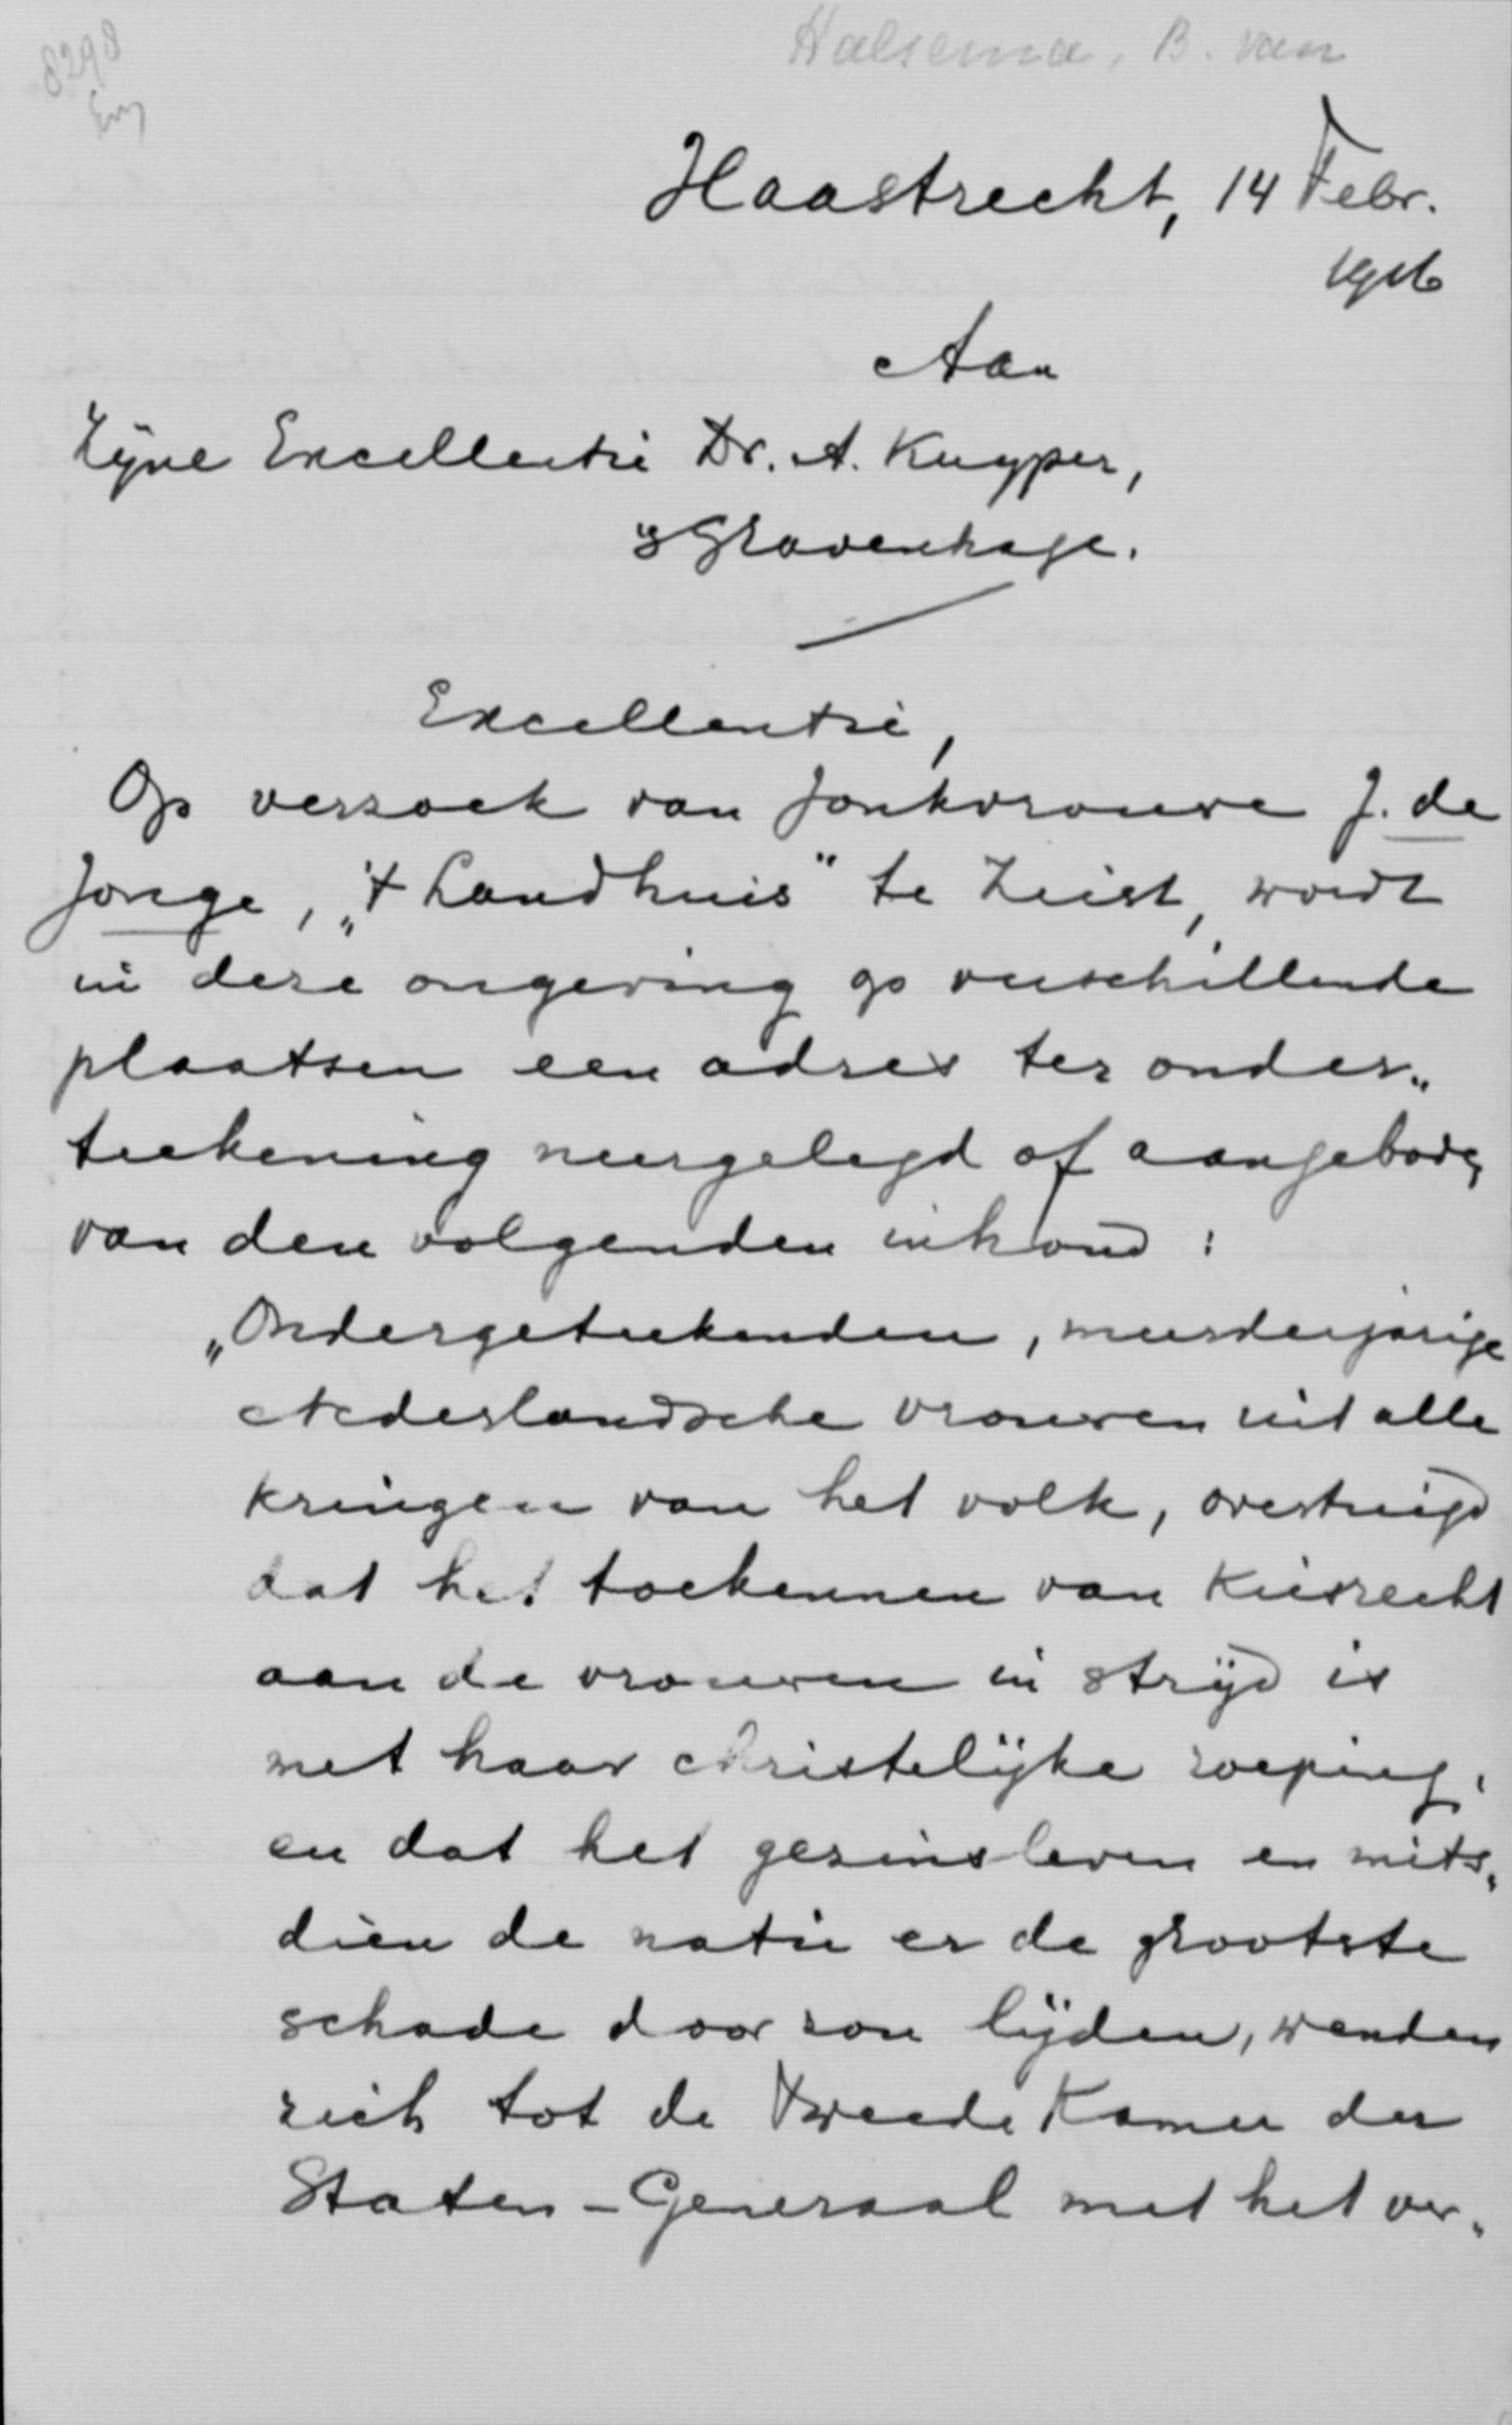 Halsema, B. van
8298
Haastrecht, 14 Febr.
1916
Aan
Zijne Excellentie Dr. A. Kuyper,
's Gravenhage.
Excellentie,
Op verzoek van Jonkvrouwe J. de
Jonge, „'t Landhuis" te Zeist, wordt
in deze omgeving op verschillende
plaatsen een adres ter onder„
teekening neergelegd of aangeboden
van den volgenden inhoud:
„Ondergeteekenden, meerderjarige
Nederlandsche vrouwen uit alle
kringen van het volk, overtuigd
dat het toekennen van Kiesrecht
aan de vrouwen in strijd is
met haar christelijke roeping,
en dat het gezinsleven en mits„
dien de natie er de grootste
schade door zou lijden, wenden
zich tot de Tweede Kamer der
Staten-Generaal met het ver„